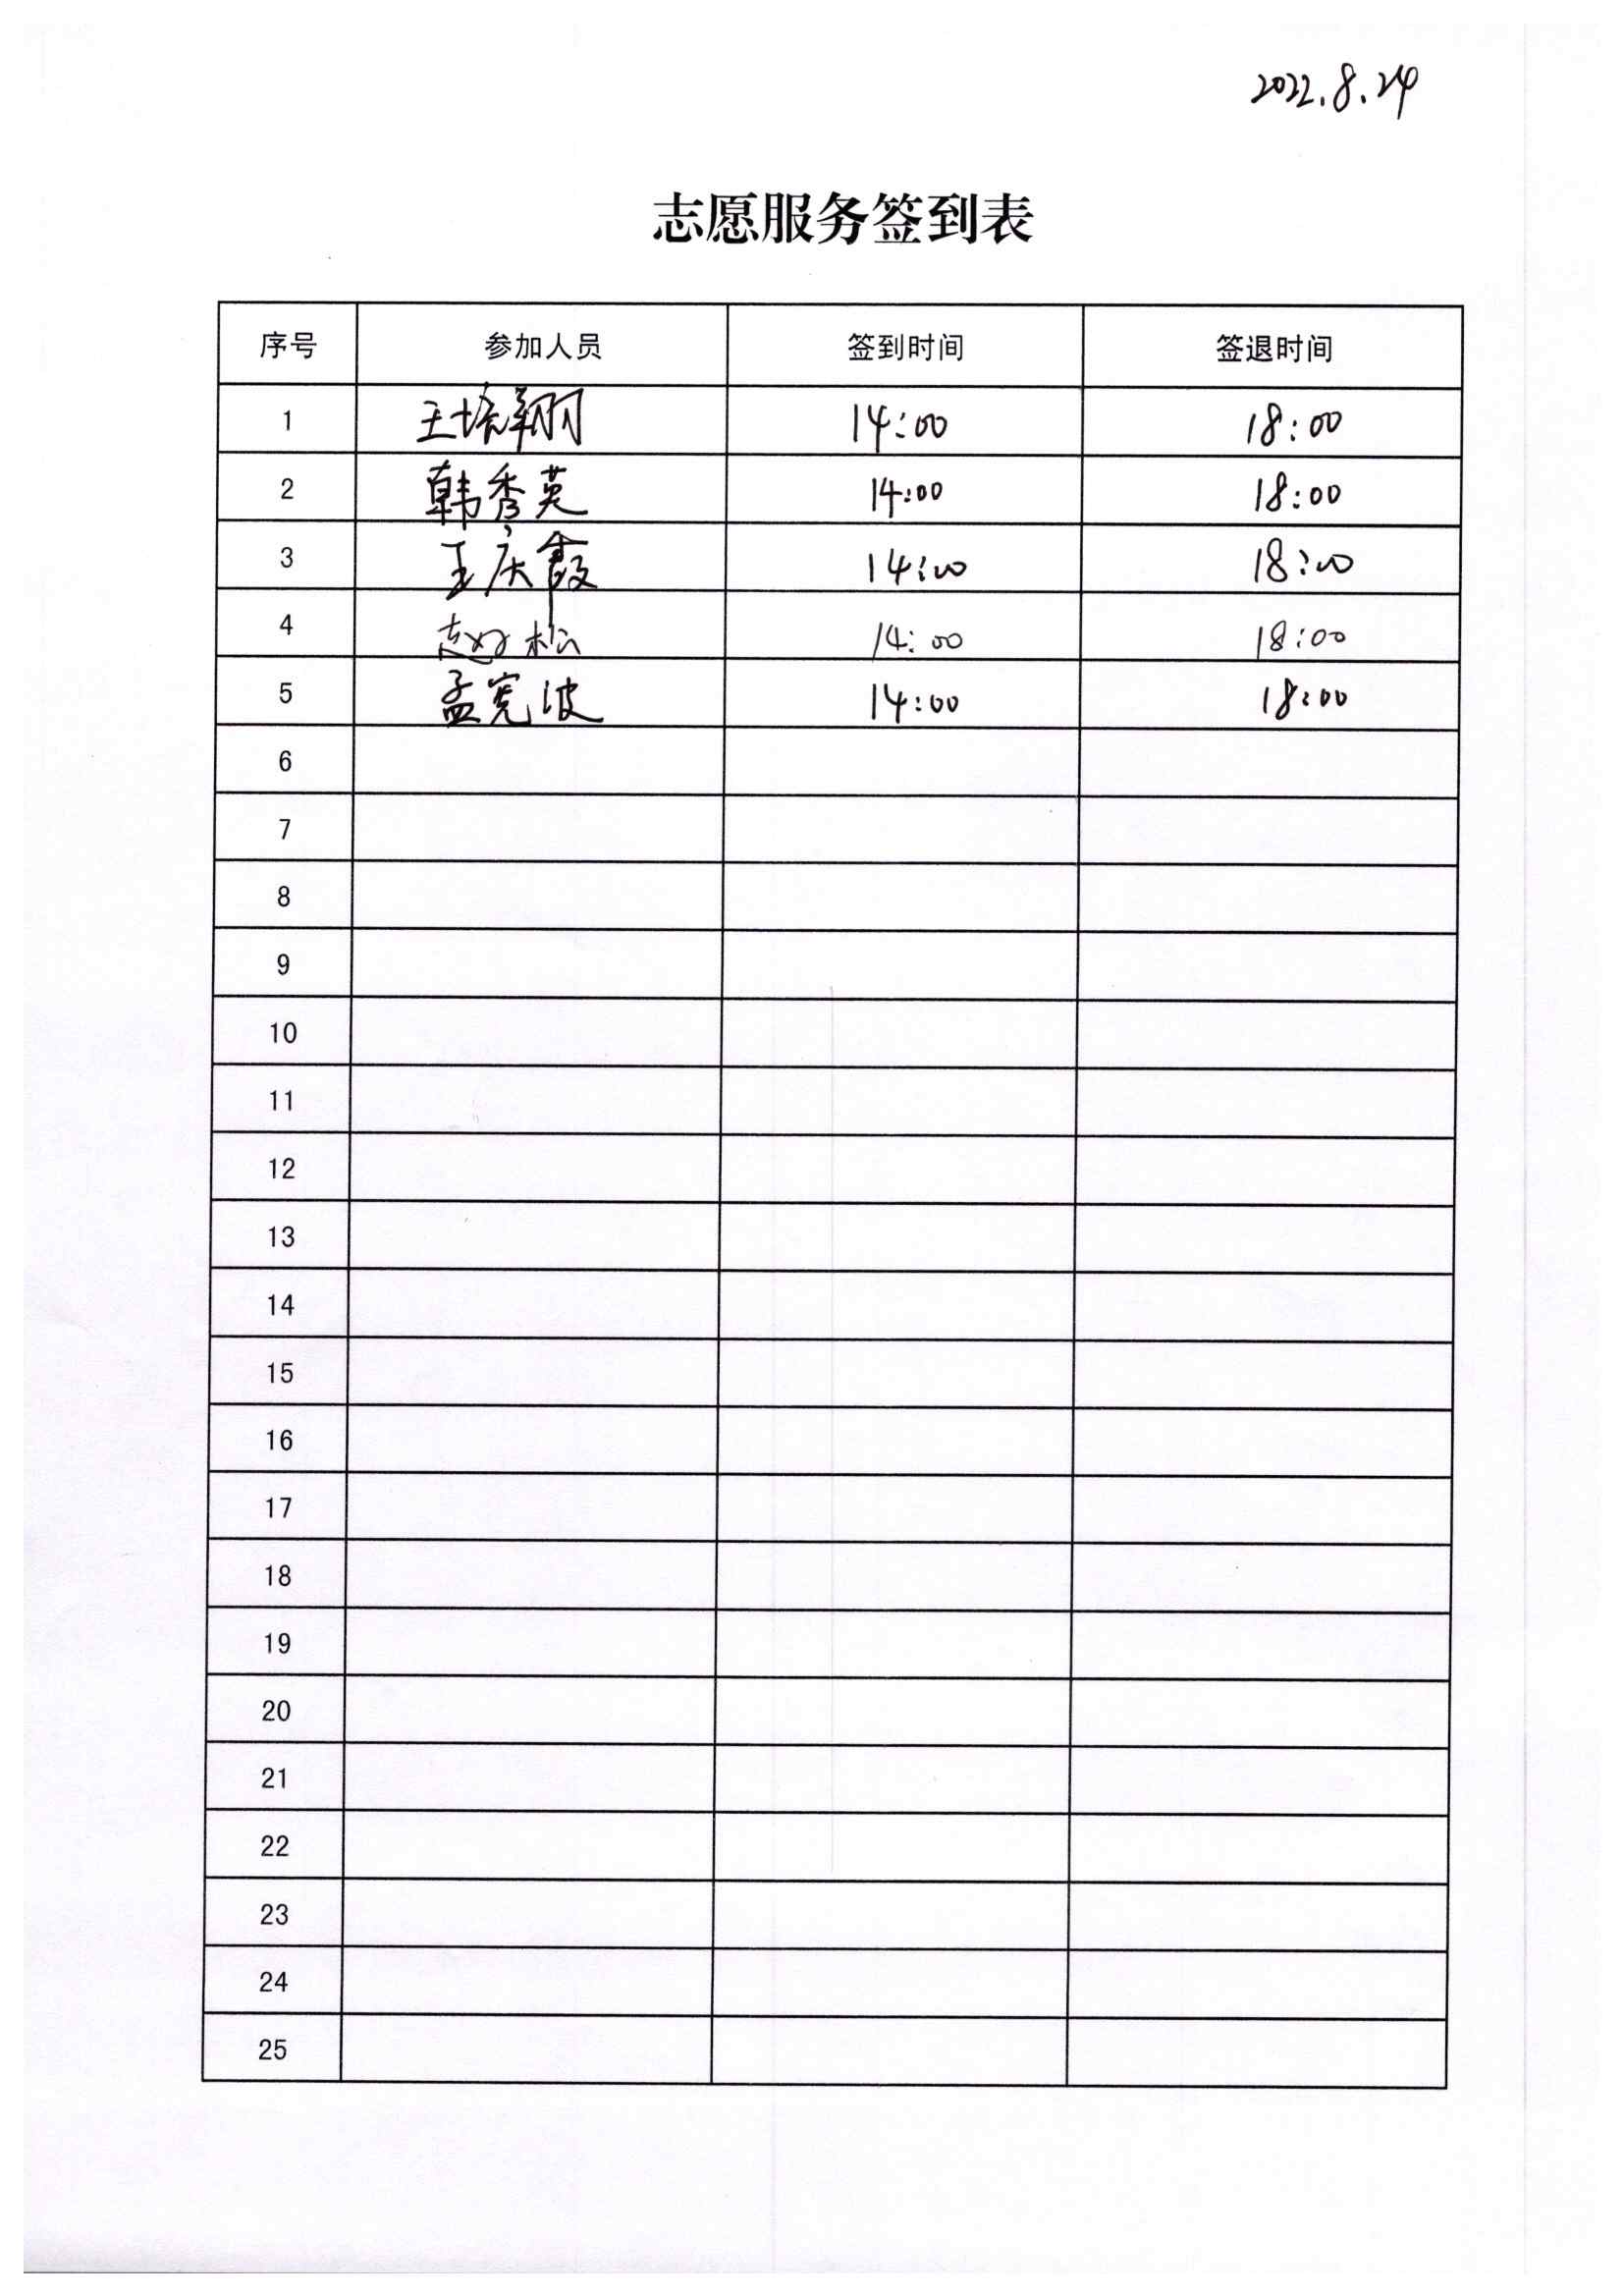 2022.8.24
志愿服务签到表
序号 参加人员 签到时间 签退时间
1 王培翔 14:00 18:00
2 韩秀英 14:00 18:00
3 王庆霞 14:00 18:00
4 赵 松 14:00 18:00
5 孟宪波 14:00 18:00
6
7
8
9
10
11
12
13
14
15
16
17
18
19
20
21
22
23
24
25